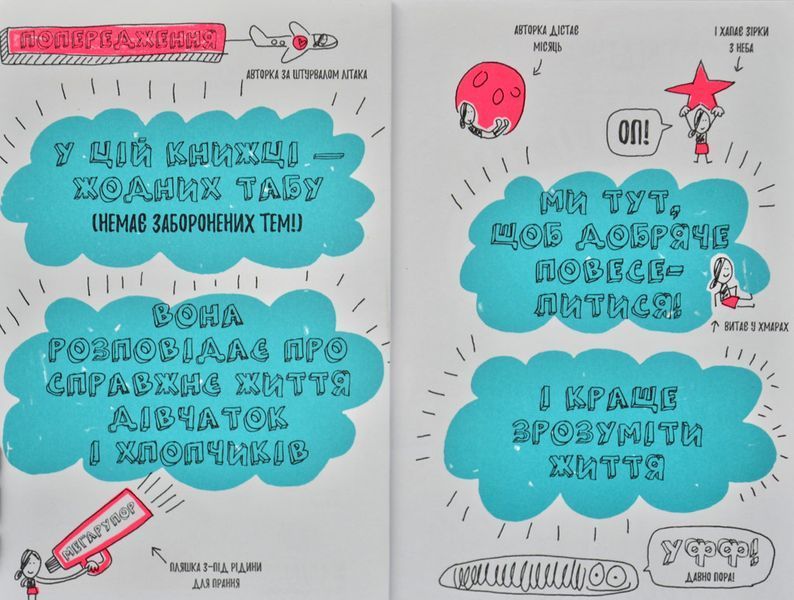 ПОПЕРЕДЖЕННЯ
АВТОРКА ЗА ШТУРВАЛОМ ЛІТАКА
У ЦІЙ КНИЖЦІ —
ЖОДНИХ ТАБУ
(НЕМАЄ ЗАБОРОНЕНИХ ТЕМ!)
ВОНА
РОЗПОВІДАЄ ПРО
СПРАВЖНЄ ЖИТТЯ
ДІВЧАТОК
І ХЛОПЧИКІВ
МЕГАРУПОР
ПЛЯШКА З-ПІД РІДИНИ
ДЛЯ ПРАННЯ
АВТОРКА ДІСТАЄ
МІСЯЦЬ
І ХАПАЄ ЗІРКИ
З НЕБА
ОП!
МИ ТУТ,
ЩОБ ДОБРЯЧЕ
ПОВЕСЕ-
ЛИТИСЯ!
ВИТАЄ У ХМАРАХ
І КРАЩЕ
ЗРОЗУМІТИ
ЖИТТЯ
УФФ!
ДАВНО ПОРА!